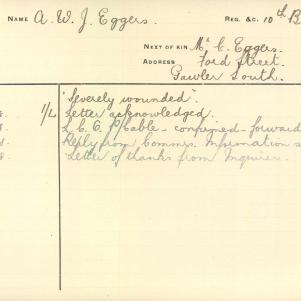 NAME A. W. J. Eggers. REG. &C. 10th B
NEXT OF KIN Mr C. Eggers.
ADDRESS Ford Street.
Gawler South.
"Severely wounded".
1/L Letter acknowledged.
L.C.C. P/Cable - confirmed - forward
Reply from Commrs. Information s
Letter of thanks from Inquirer.